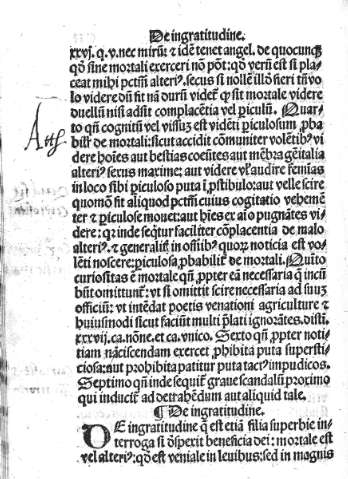 De ingratitudine.
xxvj. q. v. nec mirum̄ et idē tenet angel. de quocunq̨
qd̄ sine mortali exerceri nō pōt: qd̄ verū est si pla-
ceat mihi pctm̄ alteri⁹. secus si nollē illd̄ fieri tn̄ vo
lo videre dū fit nā durū videt᷑ q̄ sit mortale videre
duellū nisi adsit complacētia vel piculū. Quar-
to qn̄ cognitū vel visuz est vidēti piculosum ꝓba
bilr̄ de mortali: sicut accidit cōmuniter volētib⁹ vi
dere hoīes aut bestias coeūtes aut mēbra gēitalia
alteri⁹ sexus maxime: aut videre vl̓ audire femīas
in loco sibi ꝑiculoso puta ī ꝓstibulo: aut velle scire
quomō fit aliquod pctm̄ cuius cogitatio vehemē
ter et ꝑiculose mouet: aut hr̄es ex aīo pugnātes vi
dere: qꝛ inde seqt᷑ur faciliter cōplacentia de malo
alteri⁹. et generaliꝉ in oīb⁹ quoꝝ noticia est vo-
lēti noscere: ꝑiculosa ꝓbabilit᷑ de mortali. Quīto
curiositas ē mortale qn̄ ꝓpter eā necessaria q̄ incū
būt omittunt᷑: vt si omittit scire necessaria ad suuz
officiū: vt intēdat poetis venationi agriculture et
huiusmodi sicut faciūt multi p̄lati ignorātes. distī.
xxxvij. ca. nōne. et ca. vnico. Sexto qn̄ ꝓpter noti-
tiam nāciscendam exercet ꝓhibita puta supersti-
ciosa: aut prohibita patitur puta tact⁹ impudicos.
Septimo qn̄ inde sequit᷑ graue scandalū proximo
qui inducit᷑ ad detrahēdum aut aliquid tale.
¶ De ingratitudine.
DE ingratitudine q̄ est etiā filia superbie in-
terroga si despexit beneficia dei: mortale est
vel alteri⁹: qd̄ est veniale in leuibus: sed in magnis